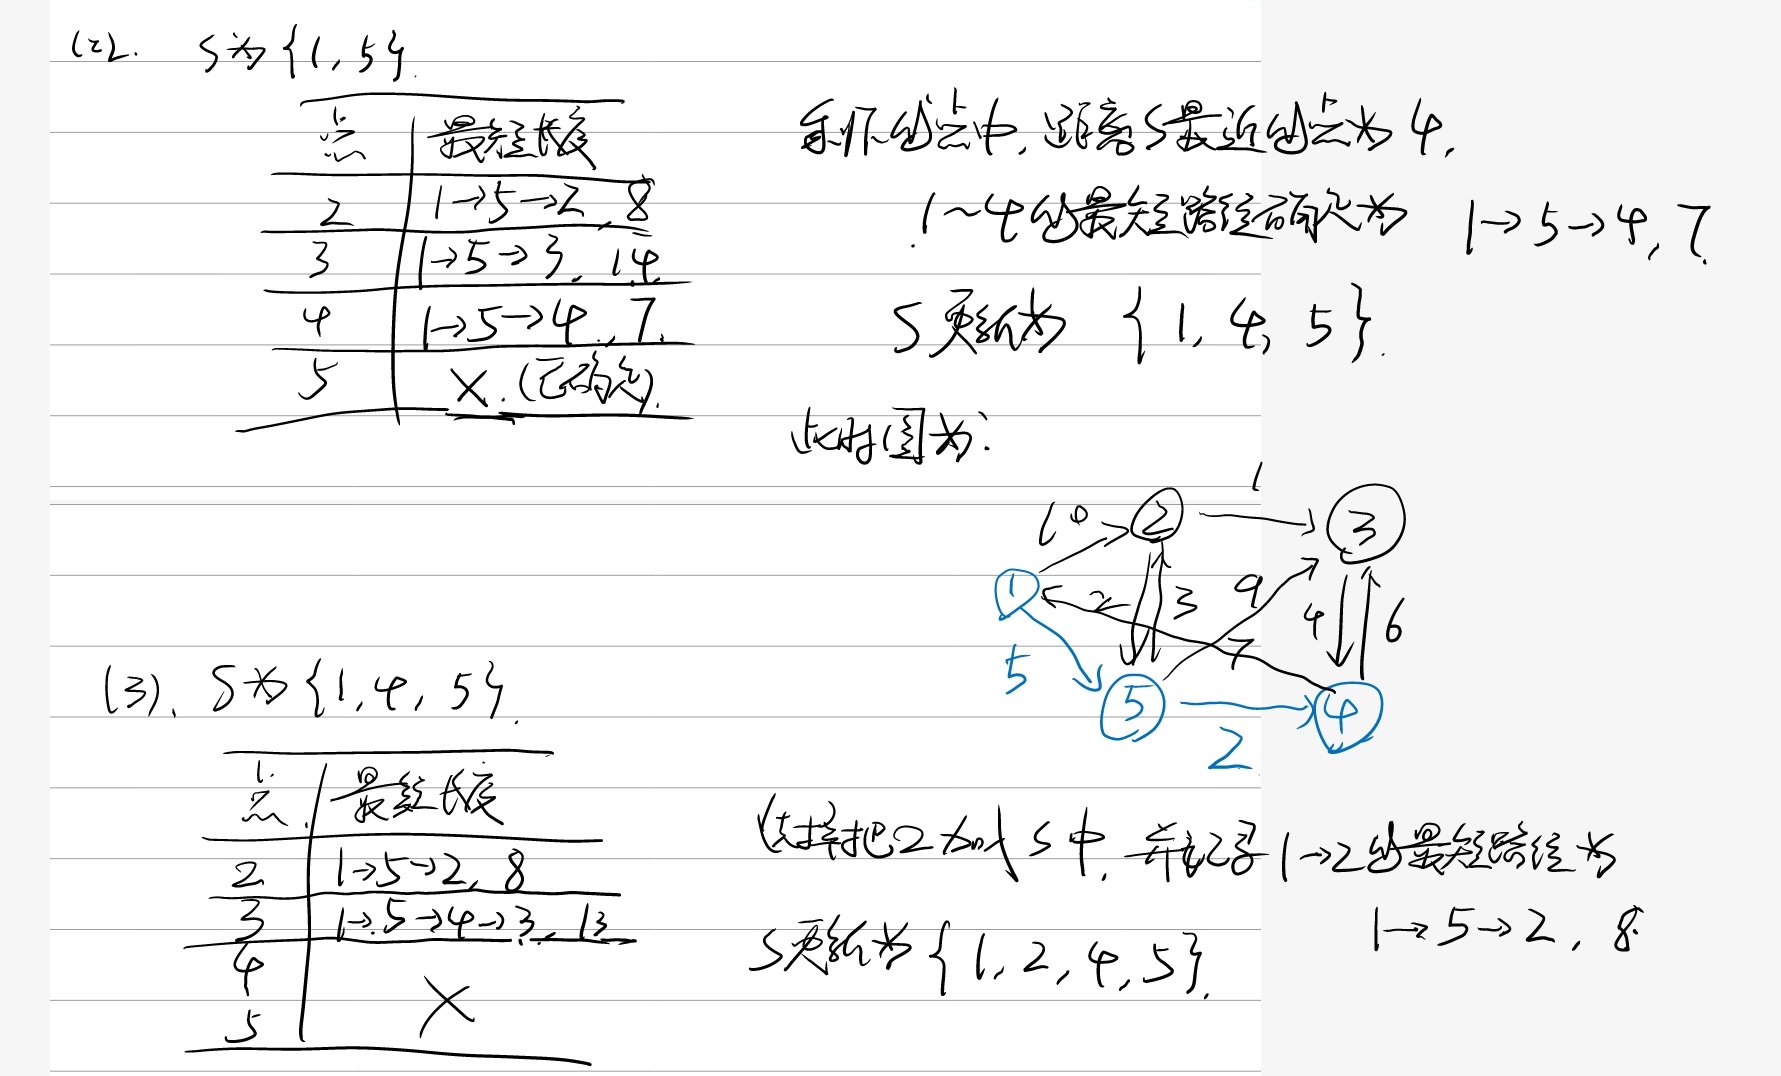 (2). S为{1,5}.
点 最短长度
2 1→5→2, 8
3 1→5→3, 14
4 1→5→4, 7.
5 X.(已确定).
剩下的点中,距离S最近的点为4,
1~4的最短路径确定为 1→5→4, 7.
S更新为 {1, 4, 5}.
此时图为:
1
10 2 3
1 2 3 9 4 6
5 7
5 4
2
(3)、S为{1,4,5}.
点 最短长度
2 1→5→2, 8
3 1→5→4→3, 13
4
X
5
选择把2加入S中,并记录1→2的最短路径为
1→5→2, 8.
S更新为{1,2,4,5}.